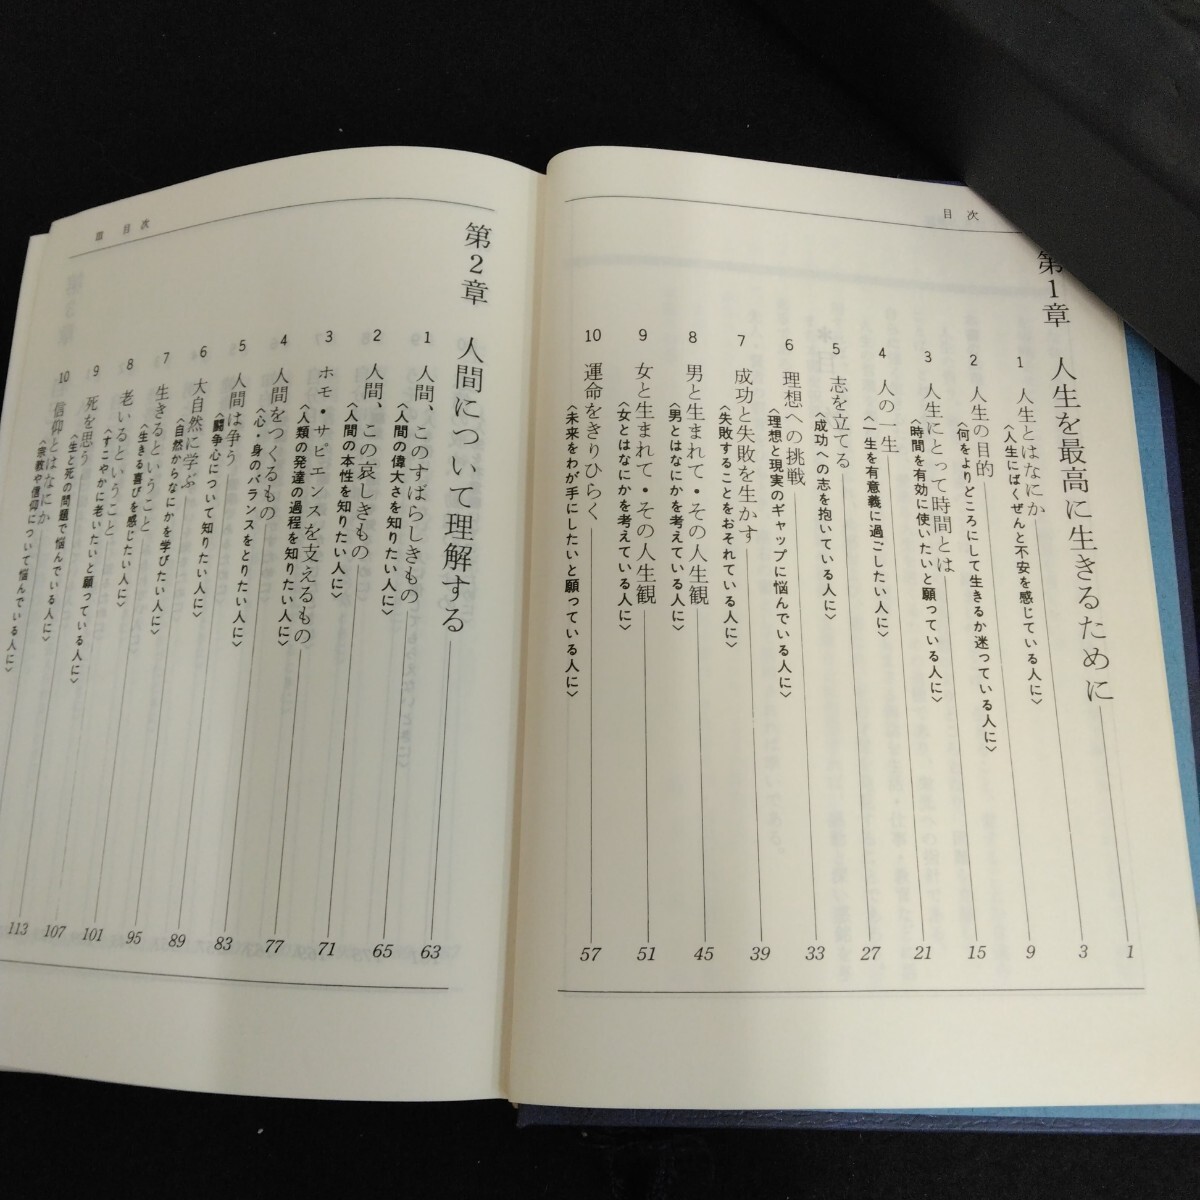 目次
第1章 人生を最高に生きるために 1
1 人生とはなにか 3
〈人生にばくぜんと不安を感じている人に〉
2 人生の目的 9
〈何をよりどころにして生きるか迷っている人に〉
3 人生にとって時間とは 15
〈時間を有効に使いたいと願っている人に〉
4 人の一生 21
〈一生を有意義に過ごしたい人に〉
5 志を立てる 27
〈成功への志を抱いている人に〉
6 理想への挑戦 33
〈理想と現実のギャップに悩んでいる人に〉
7 成功と失敗を生かす 39
〈失敗することをおそれている人に〉
8 男と生まれて・その人生観 45
〈男とはなにかを考えている人に〉
9 女と生まれて・その人生観 51
〈女とはなにかを考えている人に〉
10 運命をきりひらく 57
〈未来をわが手にしたいと願っている人に〉
III 目次
第2章 人間について理解する 63
1 人間、このすばらしきもの 65
〈人間の偉大さを知りたい人に〉
2 人間、この哀しきもの 71
〈人間の本性を知りたい人に〉
3 ホモ・サピエンスを支えるもの 77
〈人類の発達の過程を知りたい人に〉
4 人間をつくるもの 83
〈心・身のバランスをとりたい人に〉
5 人間は争う 89
〈闘争心について知りたい人に〉
6 大自然に学ぶ 95
〈自然からなにかを学びたい人に〉
7 生きるということ 101
〈生きる喜びを感じたい人に〉
8 老いるということ 107
〈すこやかに老いたいと願っている人に〉
9 死を思う 113
〈生と死の問題で悩んでいる人に〉
10 信仰とはなにか
〈宗教や信仰について悩んでいる人に〉